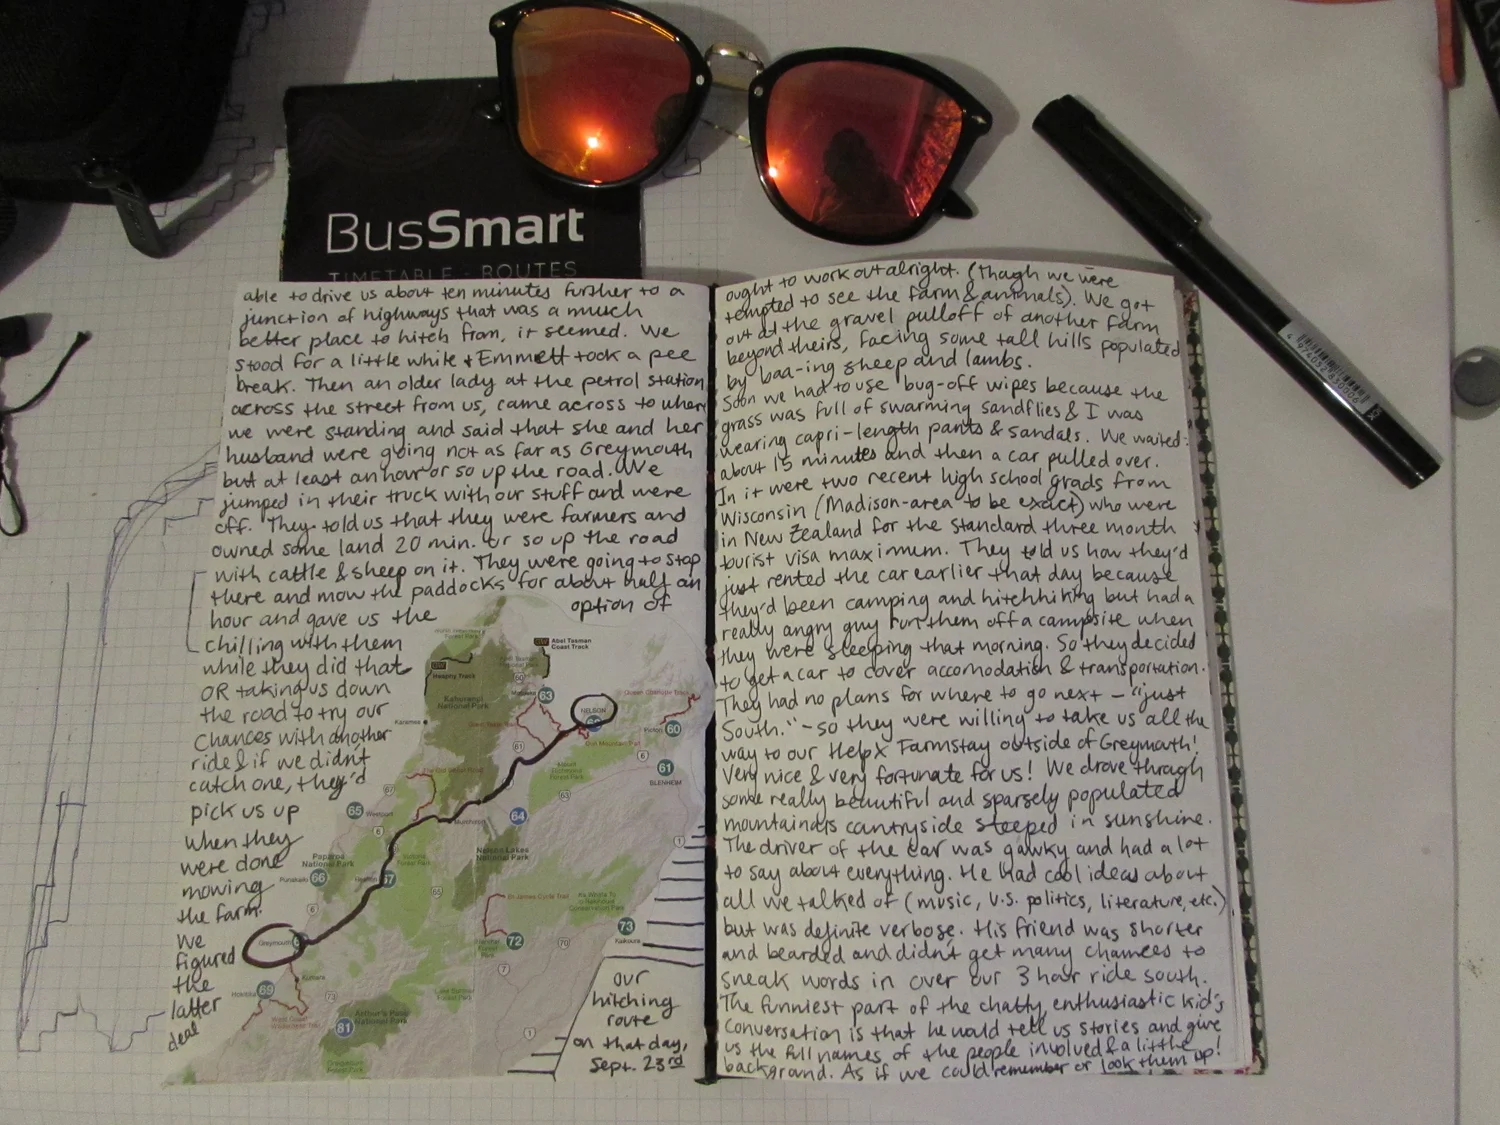 BusSmart
TIMETABLE - ROUTES
able to drive us about ten minutes further to a
junction of highways that was a much
better place to hitch from, it seemed. We
stood for a little while & Emmett took a pee
break. Then an older lady at the petrol station
across the street from us, came across to where
we were standing and said that she and her
husband were going not as far as Greymouth
but at least an hour or so up the road. We
jumped in their truck with our stuff and were
off. They told us that they were farmers and
owned some land 20 min. or so up the road
with cattle & sheep on it. They were going to stop
there and mow the paddocks for about half an
hour and gave us the option of
chilling with them
while they did that
OR taking us down
the road to try our
chances with another
ride & if we didn't
catch one, they'd
pick us up
when they
were done
mowing
the farm.
We
figured
the
latter
deal
Abel Tasman
Coast Track
Heaphy Track
Kahurangi
National Park
Karamea
63
NELSON
Picton 60
61
6
61
BLENHEIM
67
65 Westport
6
Murchison
64
63
Mount
Richmond
Forest Park
1
Paparoa
National Park
Punakaiki 66
67
Nelson Lakes
National Park
65
6
St James Cycle Trail
Greymouth
72
70
73
Kaikoura
7
Kumara
Hokitika 69
73
West Coast
Wilderness Trail
Arthur's Pass
National Park
81
1
our
hitching
route
on that day,
Sept. 23rd
ought to work out alright. (though we were
tempted to see the farm & animals). We got
out at the gravel pulloff of another farm
beyond theirs, facing some tall hills populated
by baa-ing sheep and lambs.
Soon we had to use bug-off wipes because the
grass was full of swarming sandflies & I was
wearing capri-length pants & sandals. We waited
about 15 minutes and then a car pulled over.
In it were two recent high school grads from
Wisconsin (Madison-area to be exact) who were
in New Zealand for the standard three month
tourist visa maximum. They told us how they'd
just rented the car earlier that day because
they'd been camping and hitchhiking but had a
really angry guy run them off a campsite when
they were sleeping that morning. So they decided
to get a car to cover accomodation & transportation.
They had no plans for where to go next – "just
South." – so they were willing to take us all the
way to our HelpX Farmstay outside of Greymouth!
Very nice & very fortunate for us! We drove through
some really beautiful and sparsely populated
mountainous countryside steeped in sunshine.
The driver of the car was gawky and had a lot
to say about everything. He had cool ideas about
all we talked of (music, U.S. politics, literature, etc.)
but was definite verbose. His friend was shorter
and bearded and didn't get many chances to
sneak words in over our 3 hour ride south.
The funniest part of the chatty, enthusiastic kid's
conversation is that he would tell us stories and give
us the full names of the people involved & a little
background. As if we could remember or look them up!
4 974052 850006